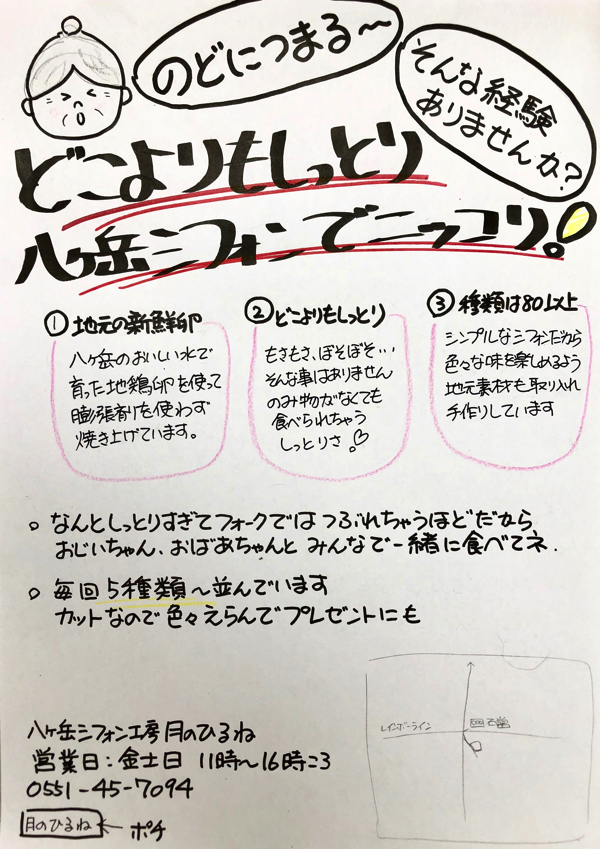 のどにつまる〜
そんな経験
ありませんか?
どこよりもしっとり
八ヶ岳シフォンでニッコリ!
① 地元の新鮮卵
八ヶ岳のおいしい水で
育った地鶏卵を使って
膨張剤を使わず
焼き上げています。
② どこよりもしっとり
もさもさ、ぼそぼそ…
そんな事はありません
のみ物がなくても
食べられちゃう
しっとりさ♡
③ 種類は80以上
シンプルなシフォンだから
色々な味を楽しめるよう
地元素材も取り入れ
手作りしています
○ なんとしっとりすぎてフォークではつぶれちゃうほどだから、
おじいちゃん、おばあちゃんとみんなで一緒に食べてネ.
○ 毎回5種類〜並んでいます
カットなので色々えらんでプレゼントにも
レインボーライン
八ヶ岳シフォン工房月のひるね
営業日:金土日 11時〜16時ころ
0551-45-7094
月のひるね ← ポチ